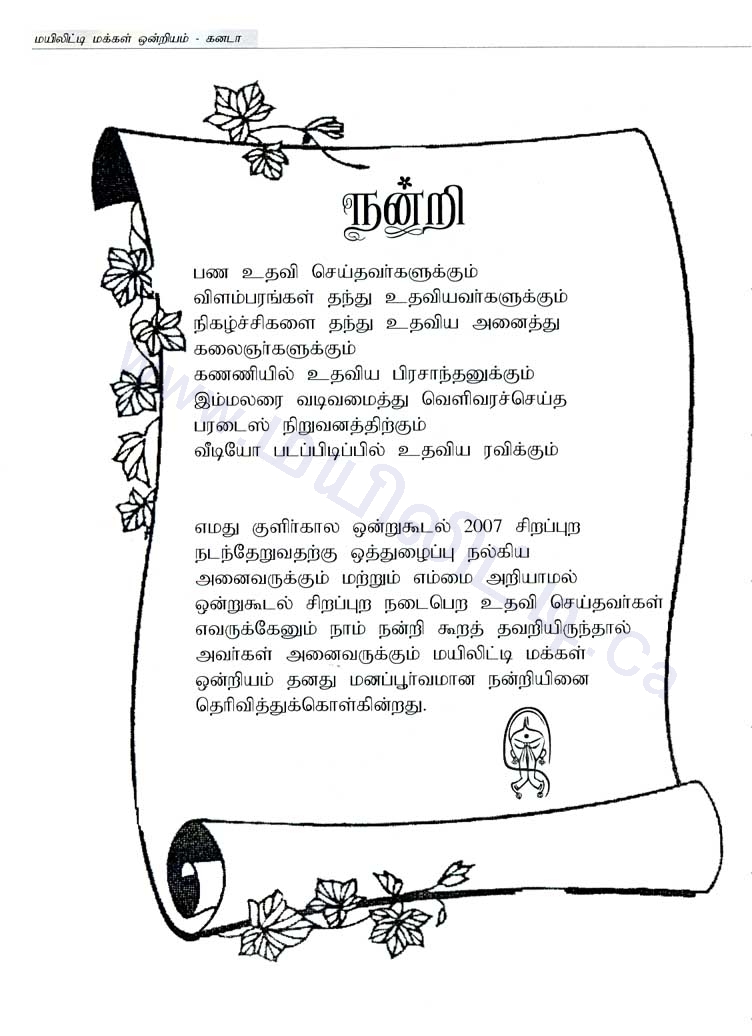 மயிலிட்டி மக்கள் ஒன்றியம் - கனடா
நன்றி
பண உதவி செய்தவர்களுக்கும்
விளம்பரங்கள் தந்து உதவியவர்களுக்கும்
நிகழ்ச்சிகளை தந்து உதவிய அனைத்து
கலைஞர்களுக்கும்
கணணியில் உதவிய பிரசாந்தனுக்கும்
இம்மலரை வடிவமைத்து வெளிவரச்செய்த
பரடைஸ் நிறுவனத்திற்கும்
வீடியோ படப்பிடிப்பில் உதவிய ரவிக்கும்
எமது குளிர்கால ஒன்றுகூடல் 2007 சிறப்புற
நடந்தேறுவதற்கு ஒத்துழைப்பு நல்கிய
அனைவருக்கும் மற்றும் எம்மை அறியாமல்
ஒன்றுகூடல் சிறப்புற நடைபெற உதவி செய்தவர்கள்
எவருக்கேனும் நாம் நன்றி கூறத் தவறியிருந்தால்
அவர்கள் அனைவருக்கும் மயிலிட்டி மக்கள்
ஒன்றியம் தனது மனப்பூர்வமான நன்றியினை
தெரிவித்துக்கொள்கின்றது.